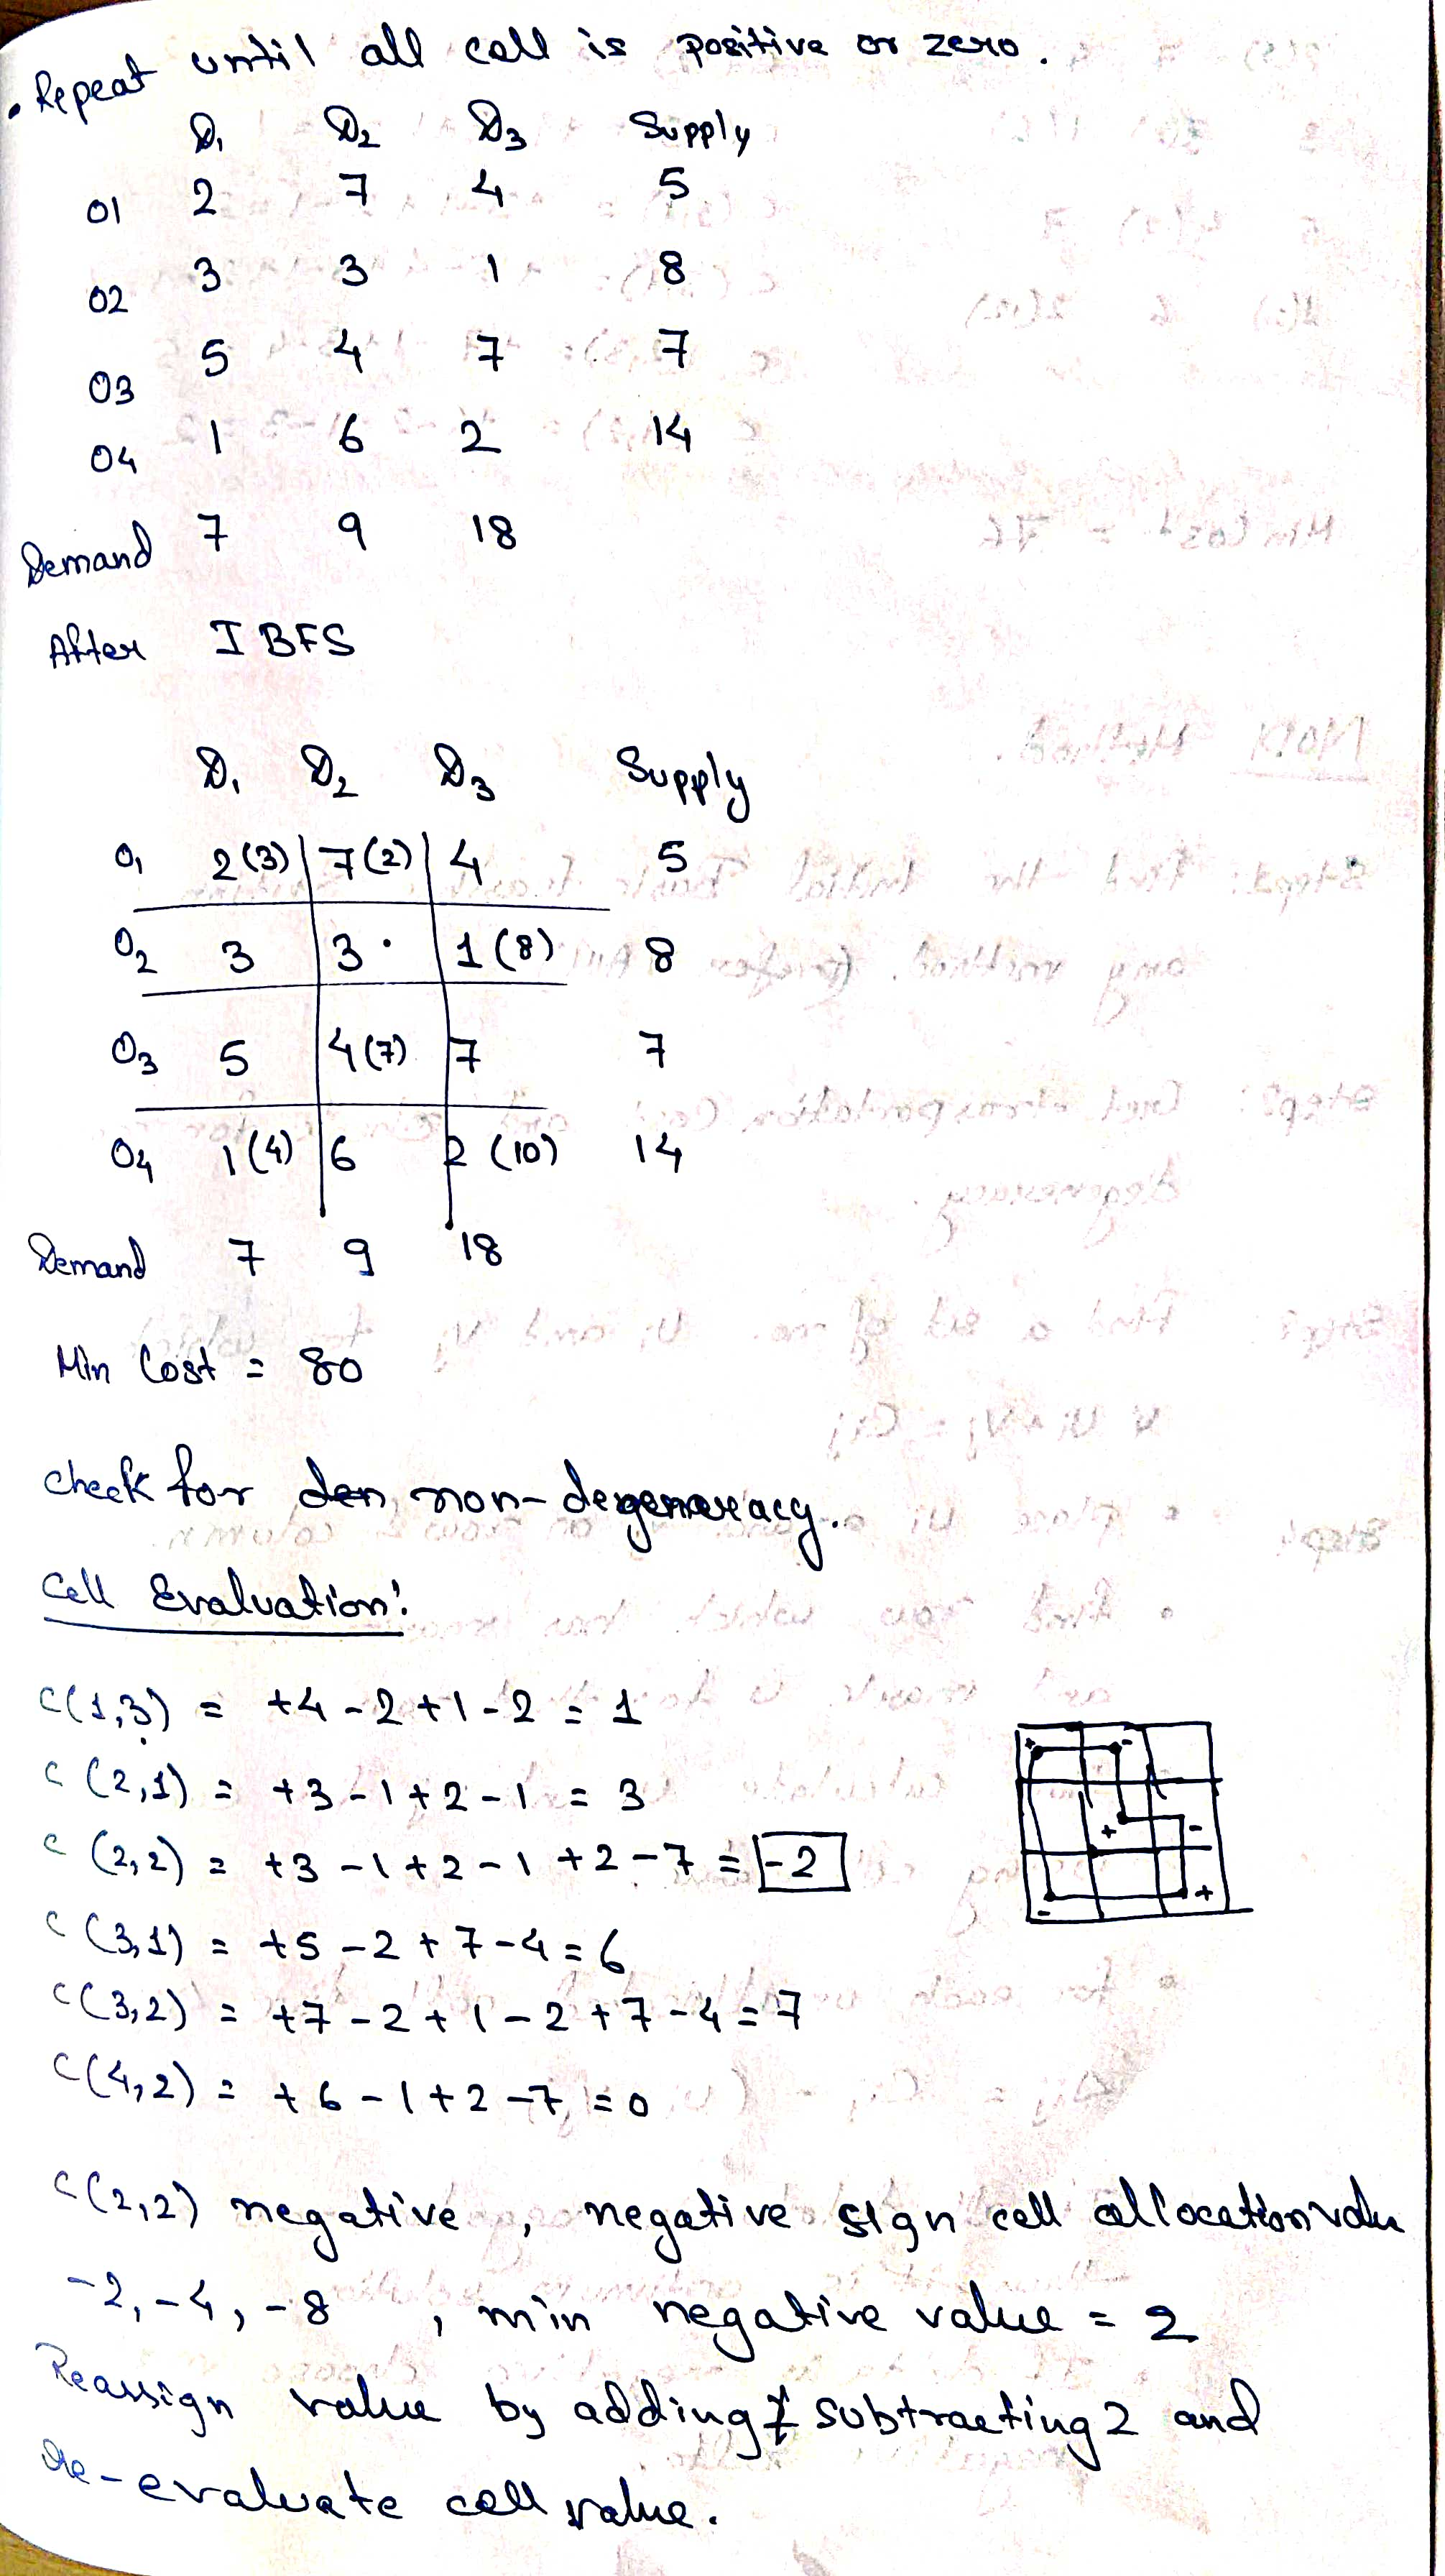 . Repeat until all cell is positive or zero.
D1 D2 D3 Supply
O1 2 7 4 5
O2 3 3 1 8
O3 5 4 7 7
O4 1 6 2 14
Demand 7 9 18
After IBFS
D1 D2 D3 Supply
O1 2(3) 7(2) 4 5
O2 3 3 1(8) 8
O3 5 4(7) 7 7
O4 1(4) 6 2(10) 14
Demand 7 9 18
Min Cost = 80
check for den non-degeneracy.
Cell Evaluation:
C(1,3) = +4-2+1-2 = 1
C(2,1) = +3-1+2-1 = 3
C(2,2) = +3-1+2-1+2-7 = -2
C(3,1) = +5-2+7-4 = 6
C(3,2) = +7-2+1-2+7-4 = 7
C(4,2) = +6-1+2-7 = 0
+ -
+ -
- +
C(2,2) negative, negative sign cell allocation valu
-2, -4, -8, min negative value = 2
Reassign value by adding & subtracting 2 and
Re-evaluate cell value.